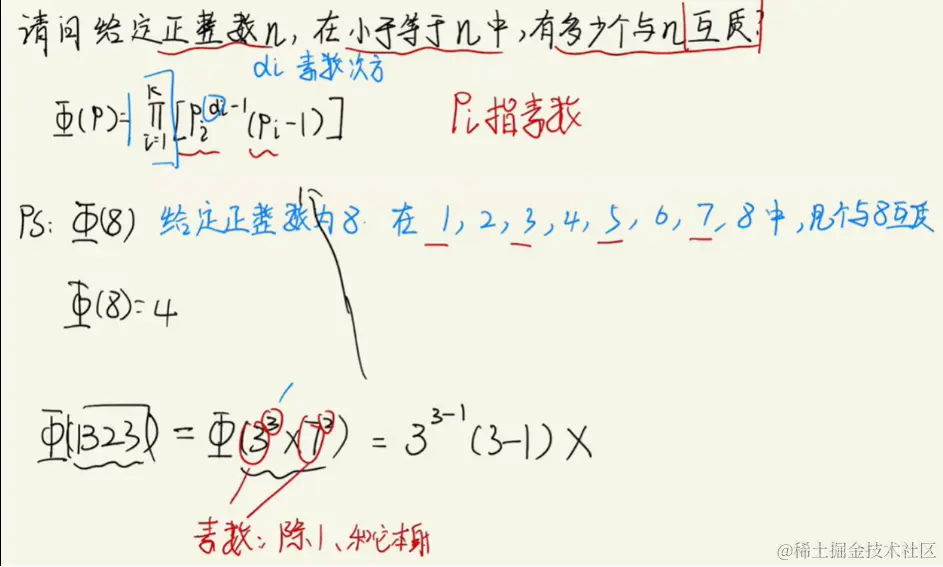 请问给定正整数n,在小于等于n中,有多少个与n互质?
αi 素数次方
Φ(P)=∏[Pi^(αi-1)(Pi-1)]
k
i=1
Pi指素数
PS: Φ(8) 给定正整数为8. 在 1, 2, 3, 4, 5, 6, 7, 8 中,几个与8互质
Φ(8)=4
Φ(1323) = Φ(3³×7²) = 3^(3-1) (3-1) ×
素数:除1、和它本身
@稀土掘金技术社区